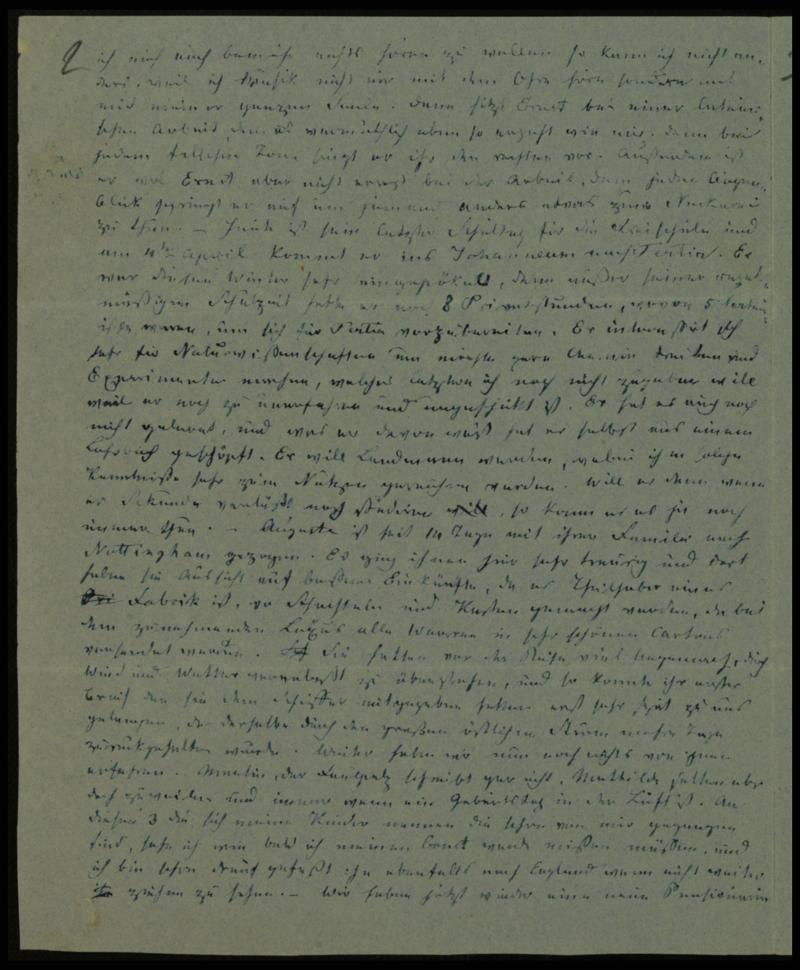 2
ich mich auch bemühe nichts hören zu wollen so kann ich nicht an-
ders, weil ich Musik nicht nur mit dem Ohre höre sondern mit
mit meiner ganzen Seele. Dann sitzt Ernst bei einer Latein-
ischen Arbeit, dem es vermuthlich eben so ergeht wie mir. denn bei
jedem falschen Tone singt er ihr den rechten vor. Außerdem ist
er Ernst aber nicht bei der Arbeit, denn jeden Augen-
blick springt er auf um jemand anders etwas zum
zu thun. – Heute ist sein letzter Schultag für die Freischule und
am April kommt er ins Johanneum nach Tertia. Er
war diesen Winter sehr eingepökelt, denn außer seiner regel-
mäßigen Schulzeit hatte er noch 8 Privatstunden, wovon 5 latein-
ische waren, um sich für Tertia vorzubereiten. Er interessirt sich
sehr für Naturwissenschaften und möchte gern Chemie treiben und
Experimente machen, welches letztere ich noch nicht zugeben will
weil er noch zu unerfahren und ungeschickt ist. Er hat es auch noch
nicht gelernt, und was er davon weiß hat er selbst aus einem
Lehrbuch geschöpft. Er will Landmann werden, wobei ihm solche
Kenntnisse sehr zum Nutzen gereichen werden. Will er dann wenn
er Sekunda verläßt noch studiren, so kann er es ja noch
immer thun. – Auguste ist seit 14 Tage mit ihrer Familie nach
Nottingham gezogen. Es ging ihnen hier sehr traurig und dort
haben sie Aussicht auf bessere Einkünfte, da er Theilhaber einer
Fabrik ist, wo Schachteln und Kasten gemacht werden, da bei
dem zunehmenden Luxus alle Waaren in sehr schönen Cartons
versendet werden. Sie hatten vor der Reise viel Ungemach, durch
Wind und Wetter veranlaßt zu überstehen, und so konnte ihr erster
Brief den sie dem Schiffer mitgegeben hatten erst sehr spät zu uns
gelangen, da derselbe durch den großen östlichen Sturm mehre Tage
zurückgehalten wurde. Weiter haben wir nun noch nichts von ihnen
erfahren. der Faulpelz schreibt gar nicht, Mathilde selten aber
doch zuweilen und immer wenn ein Geburtstag in der Luft ist. An
diesen 3 die sich meine Kinder nennen die schon von mir gegangen
sind, sehe ich wie bald ich meinen Ernst werde missen müssen, und
ich bin schon drauf gefaßt ihn ebenfalls nach England wenn nicht weiter
ziehen zu sehen. – Wir haben jetzt wieder eine neue Pensionärin